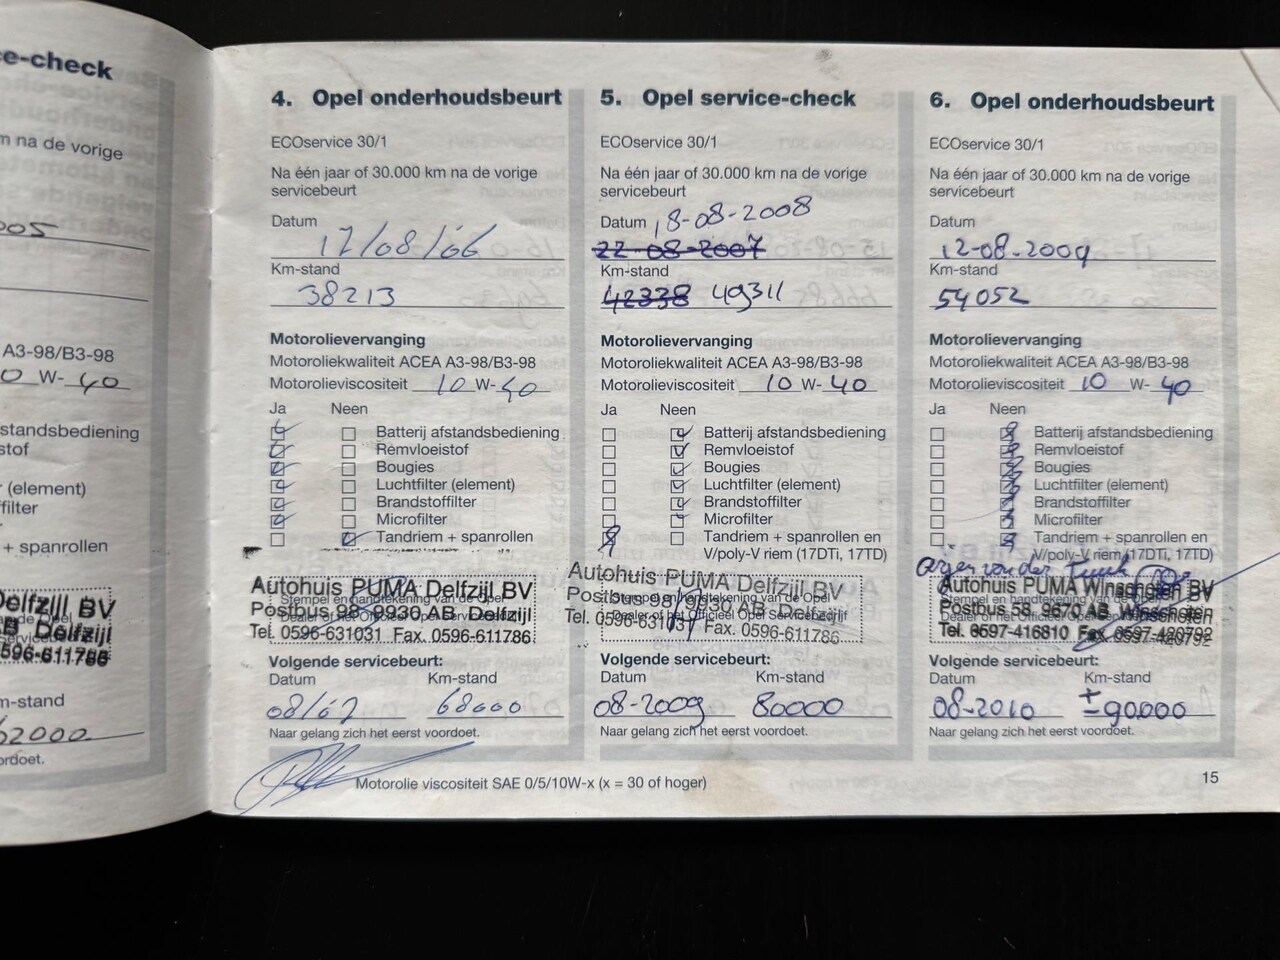 e-check
m na de vorige
005
A3-98/B3-98
0 W- 40
standsbediening
stof
r (element)
filter
r
+ spanrollen
Delfzijl BV
B Delfzijl
596-611786
m-stand
62000
ordoet.
4. Opel onderhoudsbeurt
ECOservice 30/1
Na één jaar of 30.000 km na de vorige
servicebeurt
Datum
17/08/06
Km-stand
38213
Motorolievervanging
Motoroliekwaliteit ACEA A3-98/B3-98
Motorolieviscositeit 10 W- 40
Ja Neen
Batterij afstandsbediening
Remvloeistof
Bougies
Luchtfilter (element)
Brandstoffilter
Microfilter
Tandriem + spanrollen
Autohuis PUMA Delfzijl BV
Stempel en handtekening van de Opel
Postbus 98 9930 AB Delfzijl
Dealer of het Officieel Opel Servicebedrijf
Tel. 0596-631031 Fax. 0596-611786
Volgende servicebeurt:
Datum Km-stand
08/07 68000
Naar gelang zich het eerst voordoet.
5. Opel service-check
ECOservice 30/1
Na één jaar of 30.000 km na de vorige
servicebeurt
Datum 18-08-2008
22-08-2007
Km-stand
42338 49311
Motorolievervanging
Motoroliekwaliteit ACEA A3-98/B3-98
Motorolieviscositeit 10 W- 40
Ja Neen
Batterij afstandsbediening
Remvloeistof
Bougies
Luchtfilter (element)
Brandstoffilter
Microfilter
Tandriem + spanrollen en
V/poly-V riem (17DTi, 17TD)
Autohuis PUMA Delfzijl BV
Stempel en handtekening van de Opel
Postbus 98 9930 AB Delfzijl
Dealer of het Officieel Opel Servicebedrijf
Tel. 0596-631031 Fax. 0596-611786
Volgende servicebeurt:
Datum Km-stand
08-2009 80000
Naar gelang zich het eerst voordoet.
6. Opel onderhoudsbeurt
ECOservice 30/1
Na één jaar of 30.000 km na de vorige
servicebeurt
Datum
12-08-2009
Km-stand
54052
Motorolievervanging
Motoroliekwaliteit ACEA A3-98/B3-98
Motorolieviscositeit 10 W- 40
Ja Neen
Batterij afstandsbediening
Remvloeistof
Bougies
Luchtfilter (element)
Brandstoffilter
Microfilter
Tandriem + spanrollen en
V/poly-V riem (17DTi, 17TD)
Autohuis PUMA Winschoten BV
Stempel en handtekening van de Opel
Postbus 58, 9670 AB Winschoten
Dealer of het Officieel Opel Servicebedrijf
Tel. 0597-416810 Fax 0597-420792
Volgende servicebeurt:
Datum Km-stand
08-2010 ± 90.000
Naar gelang zich het eerst voordoet.
Motorolie viscositeit SAE 0/5/10W-x (x = 30 of hoger)
15